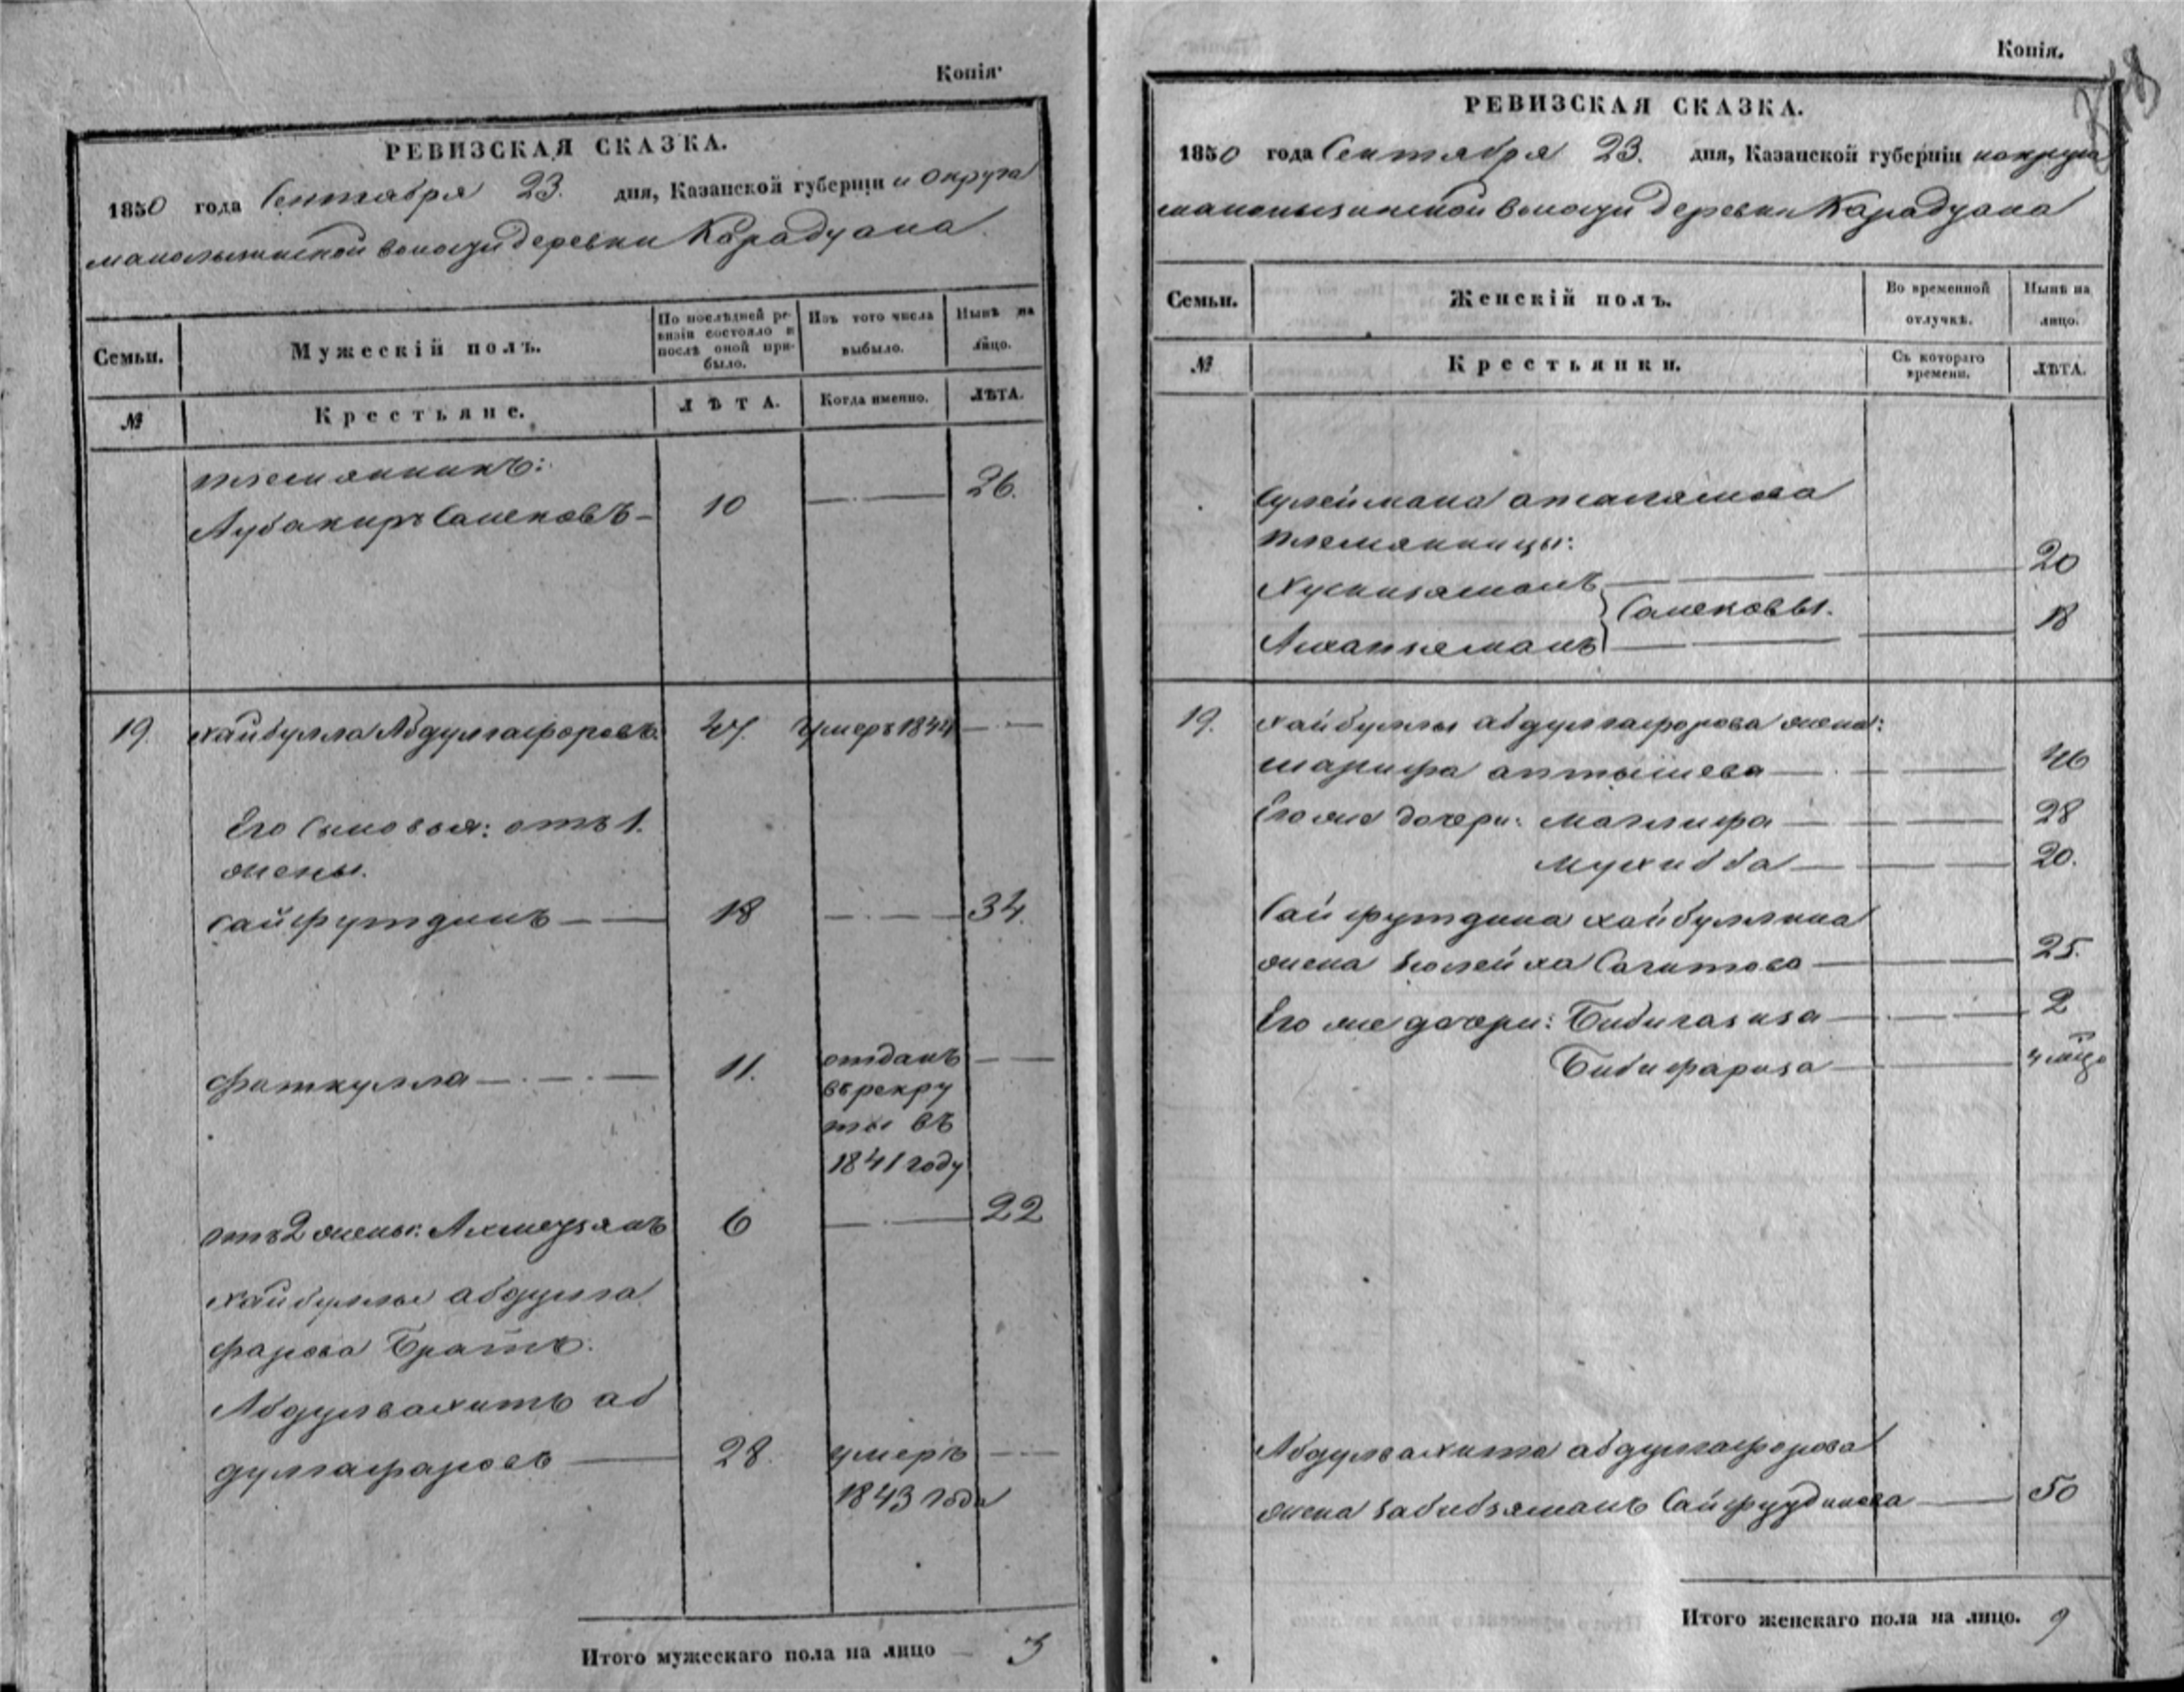 Копія·
РЕВИЗСКАЯ СКАЗКА.
1850 года Сентября 23. дня, Казанской губерніи и округа
волости деревни Карадуана
Семьи.
Мужескій полъ.
По послѣдней ре-
визіи состояло и
послѣ оной при-
было.
Изъ того числа
выбыло.
Нынѣ на
лицо.
№
Крестьяне.
ЛѢТА.
Когда именно.
ЛѢТА.
племянникъ:
Аубакиръ Сашековъ 10 26.
19. хайбулла Абдулгафаровъ. 47. умеръ 1844
Его Сыновья: отъ 1.
жены.
сайфутдинъ 18 34.
фаткулла 11. отданъ
въ рекру
ты въ
1841 году
отъ 2 жены: Ахметзянъ 6 22
хайбуллы абдулга
фарова братъ:
Абдулвахитъ аб
дулгафаровъ 28. умеръ
1843 года
Итого мужескаго пола на лицо 3
Копія.
РЕВИЗСКАЯ СКАЗКА.
1850 года Сентября 23. дня, Казанской губерніи и округа
волости деревни Карадуана
Семьи.
Женскій полъ.
Во временной
отлучкѣ.
Нынѣ на
лицо.
№
Крестьянки.
Съ котораго
времени.
ЛѢТА.
Сулеймана
племянницы:
Хуснизяманъ 20
Сашековы.
18
19. хайбуллы абдулгафарова жена:
шарифа 46
Его же дочери: маглифа 28
мухибба 20.
Сайфутдина хайбуллина
жена зюлейха Сагитова 25.
Его же дочери: Бибигазиза 2
Бибифариза
Абдулвахита абдулгафарова
жена Сайфудинова 50
Итого женскаго пола на лицо. 9